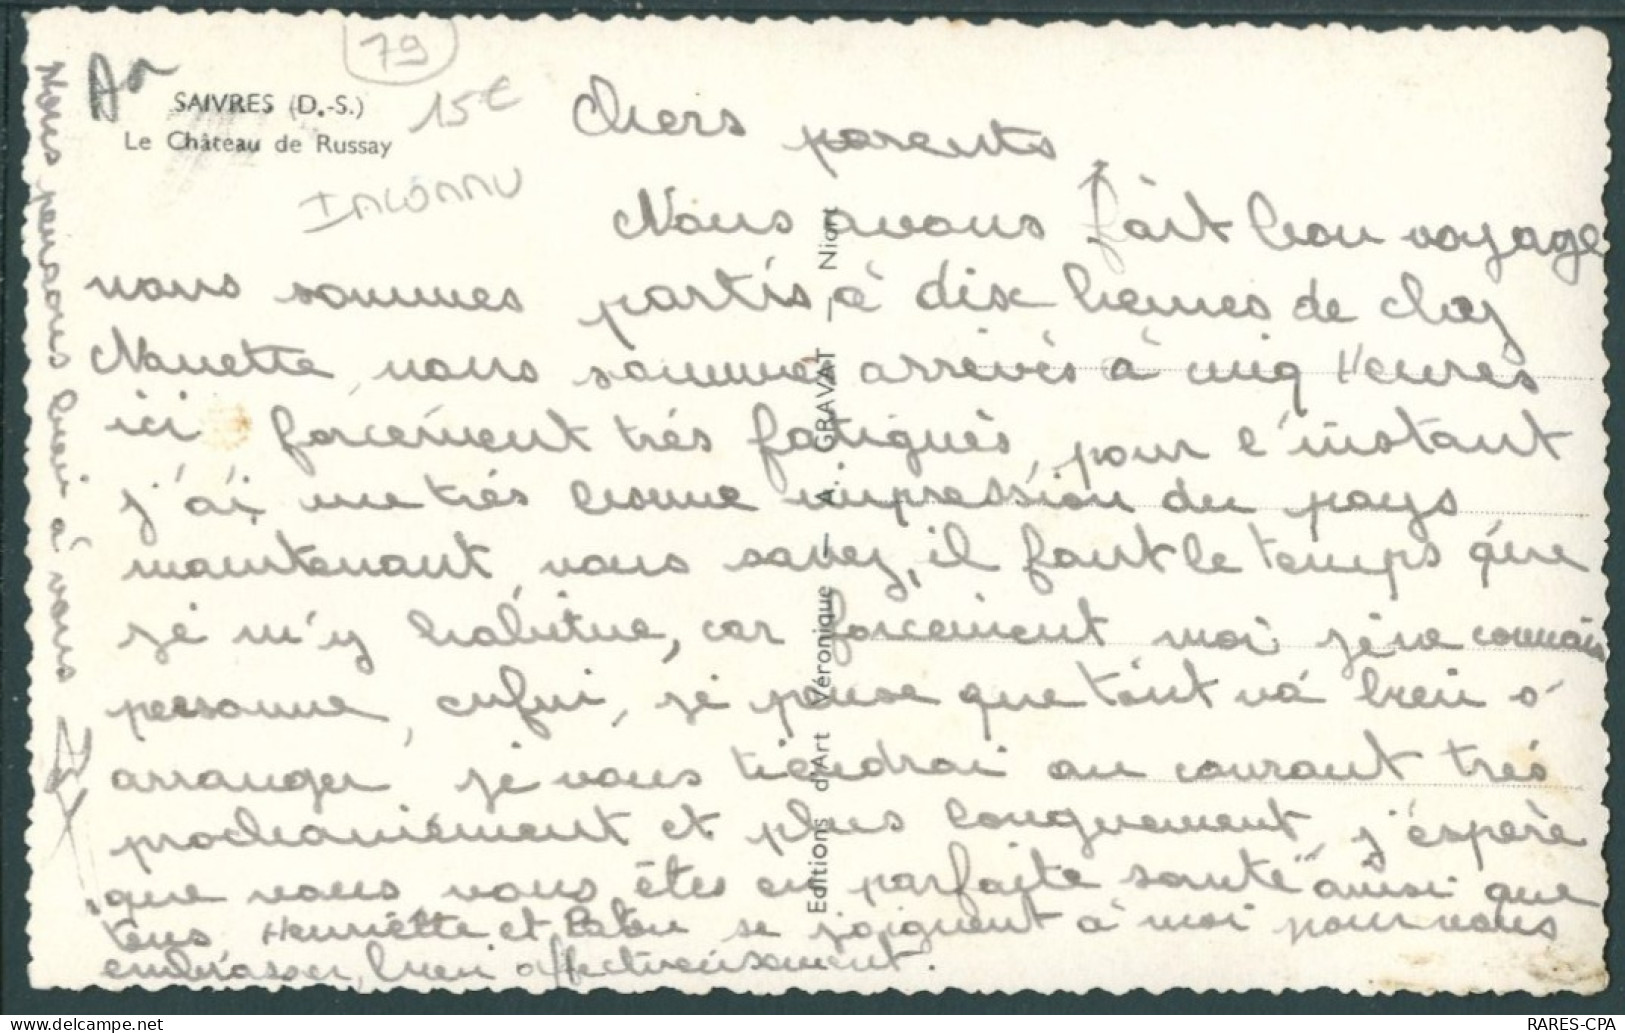 79
SAIVRES (D.-S.)
Le Château de Russay
15€
INCONNU
Chers parents
Nous avons fait bon voyage
nous sommes partis à dix heures de chez
Nanette, nous sommes arrivés à cinq Heures
ici forcément trés fatigués, pour l'instant
j'ai une trés bonne impression du pays
maintenant, vous savez, il faut le temps que
je m'y habitue, car forcement moi je ne connais
personne, enfin, je pense que tout va bien s'
arranger, je vous tiendrai au courant trés
prochainement et plus longuement, j'espère
que vous vous êtes en parfaite santé ainsi que
tous Henriette et se joignent à moi pour vous
embrasser, bien affectueusement.
Nous pensons bien à vous
Editions d'Art Véronique — A. GRAVAT — Niort
RARES-CPA
delcampe.net